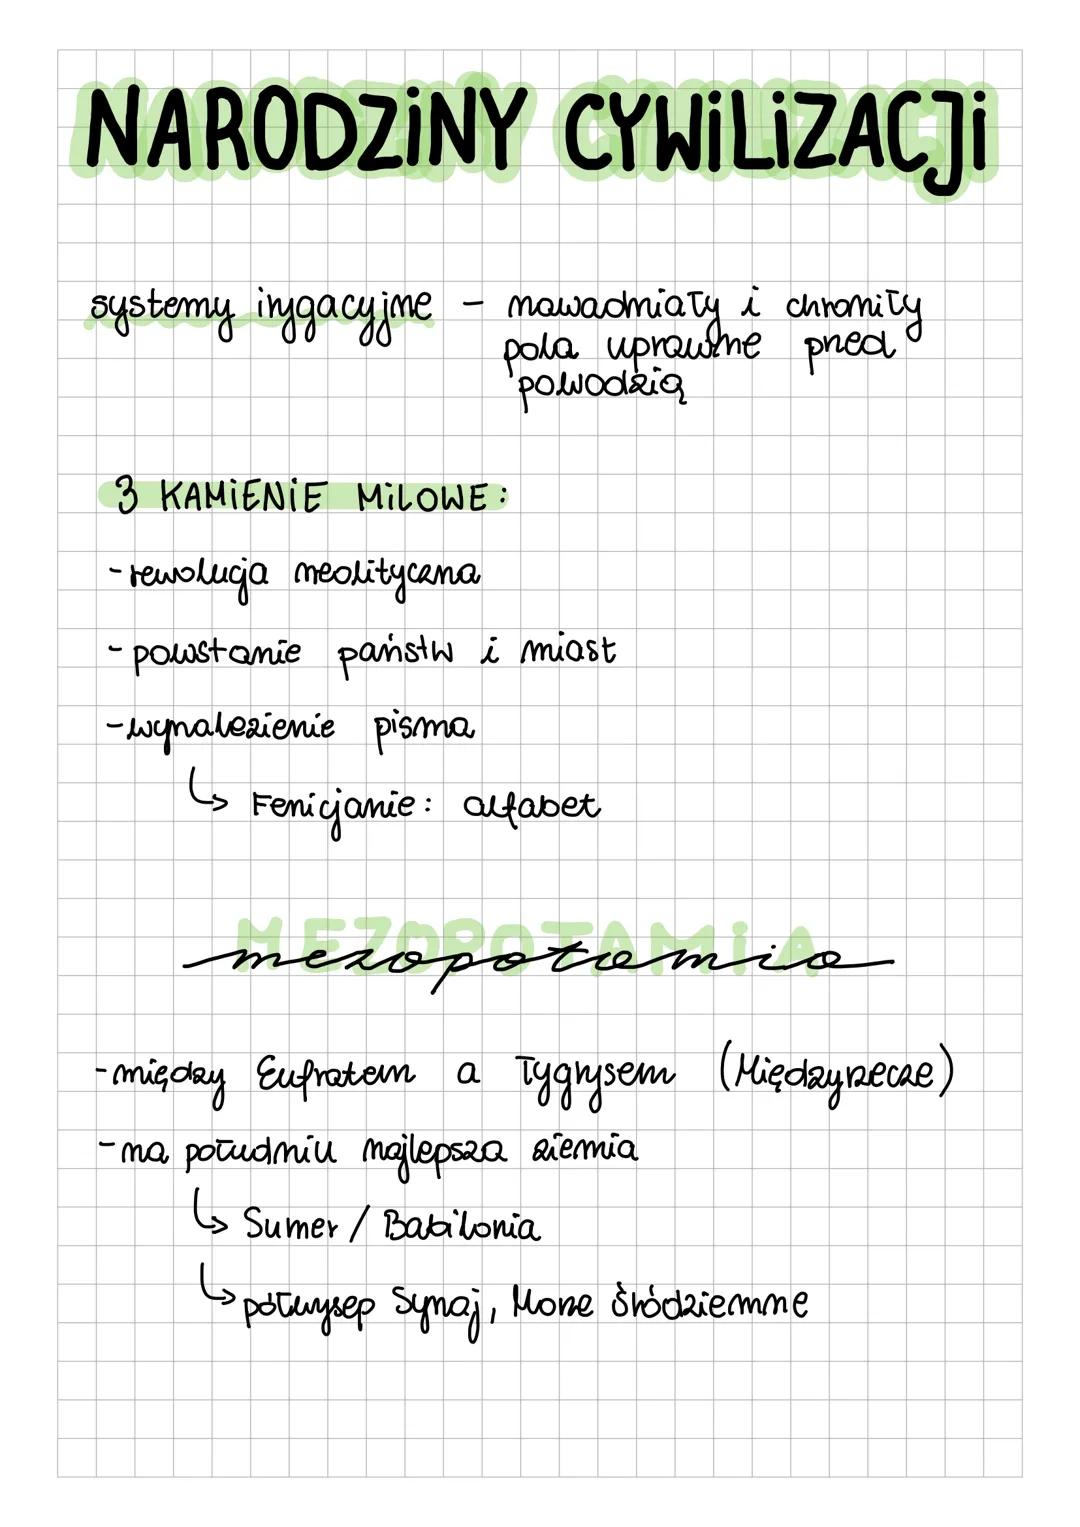 NARODZiNY CYWiLiZACJi
systemy irygacyjne - nawadniały i chroniły
pola uprawne przed
powodzią
3 KAMiENiE MiLOWE:
- rewolucja neolityczna
- powstanie państw i miast
- wynalezienie pisma
↳ Fenicjanie: alfabet
MEZOPOTAMiA
mezopotamia
- między Eufratem a Tygrysem (Międzyrzecze)
- na południu najlepsza ziemia
↳ Sumer / Babilonia
↳ półwysep Synaj, Morze Śródziemne